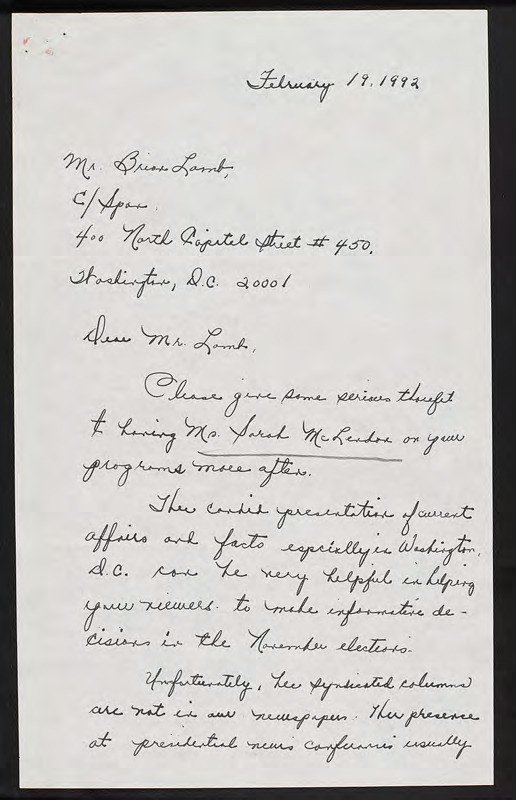 February 19, 1992
Mr. Brian Lamb,
C/Span
400 North Capitol Street # 450,
Washington, D.C. 20001
Dear Mr. Lamb,
Please give some serious thought
to having Ms. Sarah McLendon on your
programs more often.
Her candid presentation of current
affairs and facts especially in Washington,
D.C. can be very helpful in helping
your viewers to make informative de-
cisions in the November elections.
Unfortunately, her syndicated columns
are not in our newspapers. Her presence
at presidential news conferences usually